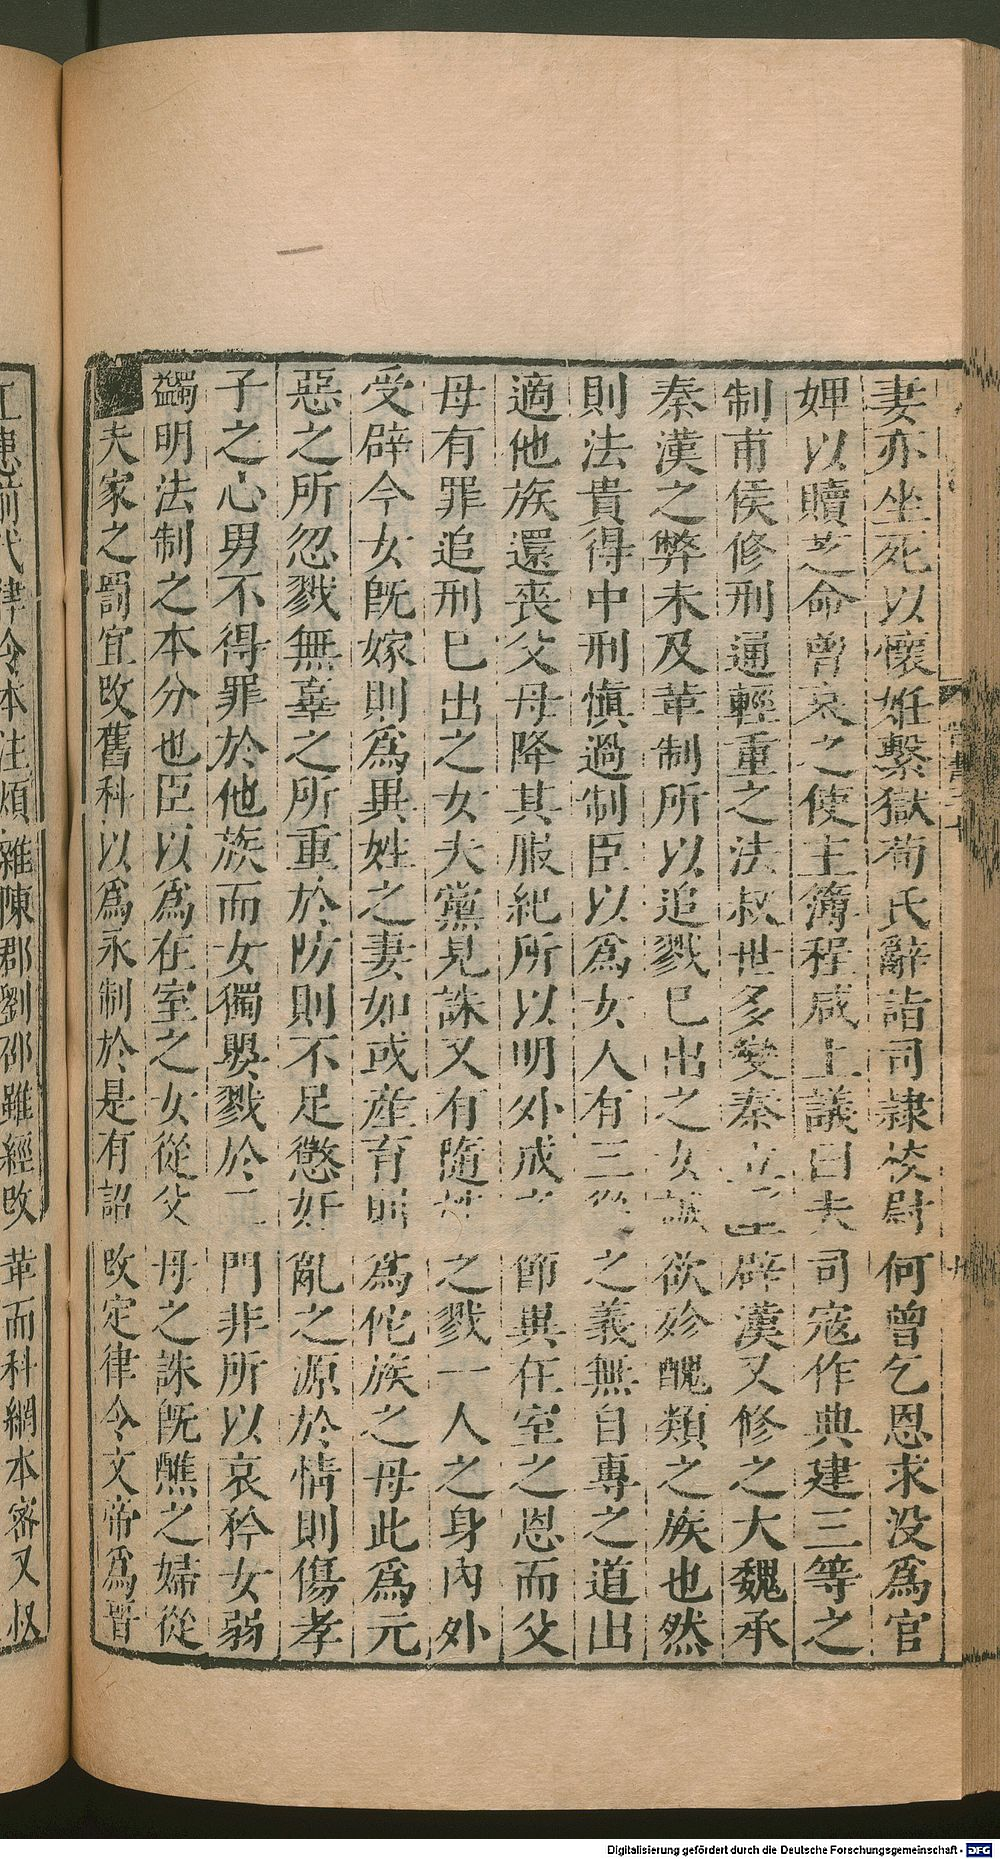 妻亦坐死以懷姙繫獄荀氏辭詣司隷校尉何曾乞恩求没爲官
婢以贖芝命曾哀之使主簿程咸上議曰夫司宼作典建三等之
制甫侯修刑通輕重之法叔世多變秦立重辟漢又修之大魏承
秦漢之弊未及革制所以追戮巳出之女誠欲殄醜類之族也然
則法貴得中刑慎過制臣以爲女人有三從之義無自專之道出
適他族還喪父母降其服紀所以明外成之節異在室之恩而父
母有罪追刑巳出之女夫黨見誅又有隨姓之戮一人之身内外
受辟今女旣嫁則爲異姓之妻如或産育則爲佗族之母此爲元
惡之所忽戮無辜之所重於防則不足懲奸亂之源於情則傷孝
子之心男不得罪於他族而女獨嬰戮於二門非所以哀矜女弱
蠲明法制之本分也臣以爲在室之女從父母之誅旣醮之婦從
夫家之罰宜改舊科以爲永制於是有詔改定律令文帝爲晉
王患前代律令本注煩雜陳郡劉邵雖經改革而科網本密又叔
Digitalisierung gefördert durch die Deutsche Forschungsgemeinschaft - DFG